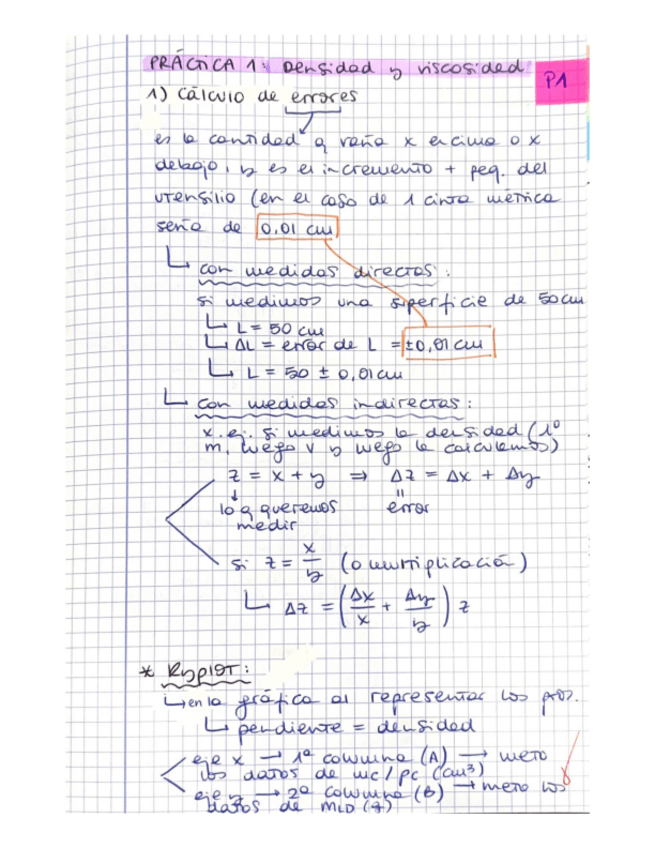 PRÁCTICA 1: Densidad y viscosidad
P1
1) Cálculo de errores
es la cantidad q varía x encima o x
debajo, y es el incremento + peq. del
utensilio (en el caso de 1 cinta métrica
sería de 0,01 cm
con medidas directas:
si medimos una superficie de 50cm
L = 50 cm
ΔL = error de L = ±0,01 cm
L = 50 ± 0,01cm
con medidas indirectas:
x. ej. si medimos la densidad (1º
m, luego v y luego la calculamos)
z = x + y ⇒ Δz = Δx + Δy
lo q queremos medir
error
si z = x/y (o multiplicación)
Δz = (Δx/x + Δy/y) z
* Ryplot:
en la gráfica al representar los ptos.
pendiente = densidad
eje x → 1ª columna (A) → meto
los datos de mc/pc (cm³)
eje y → 2ª columna (B) → meto los
datos de